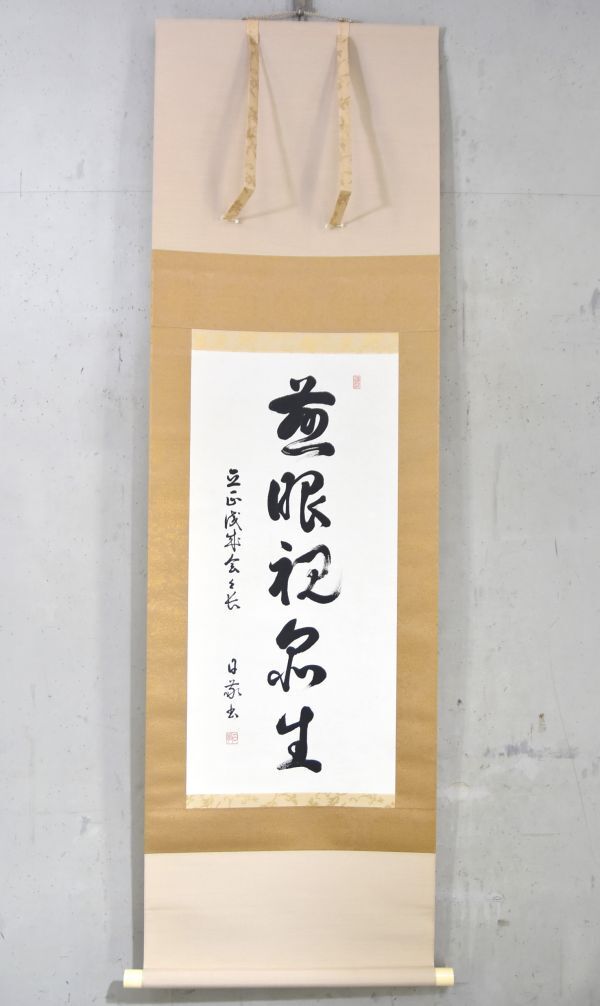 慈眼視衆生
立正佼成会々長
日敬書